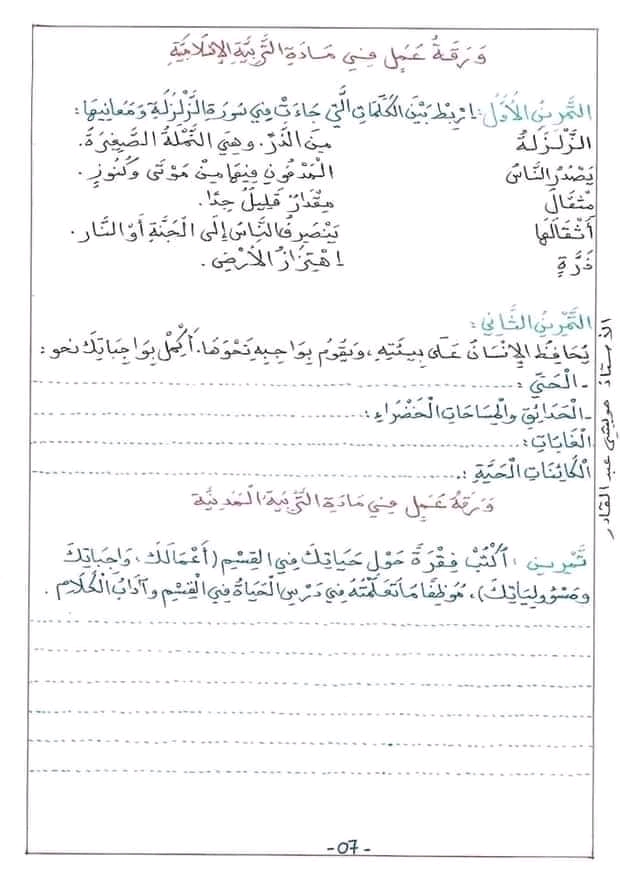 وَرَقَةُ عَمَلٍ فِي مَادَةِ التَّرْبِيَّةِ الإِسْلَامِيَّةِ
التَّمْرِينُ الأُوَّلُ: اِرْبِطْ بَيْنَ الْكَلِمَاتِ الَّتِي جَاءَتْ فِي سُورَةِ الزَّلْزَلَةِ وَمَعَانِيهَا:
الزَّلْزَلَةُ مِنَ الذَّرِّ. وهِيَ النَّمْلَةُ الصَّغِيرَةُ.
يَصْدُرُ النَّاسُ الْمَدْفُونِ فِيهَا مِنْ مَوْتَى وَكُنُوزٍ.
مِثْقَالَ مِقْدَارٌ قَلِيلٌ جِدًّا.
أَثْقَالَهَا يَنْصَرِفُ النَّاسُ إِلَى الْجَنَّةِ أَوْ النَّار.
ذَرَّةٍ اِهْتِزَازُ الأَرْضِ.
التَّمْرِينُ الثَّانِي:
يُحَافِظُ الإِنْسَانُ عَلَى بِيئَتِهِ، وَيَقُومُ بِوَاجِبِهِ نَحْوَهَا. أَكْمِلْ بِوَاجِبَاتِكَ نحو:
- الْحَيِّ:
- الْحَدَائِقِ والْمِسَاحَاتِ الْخَضْرَاءِ:
الْغَابَاتِ:
الْكَائِنَاتِ الْحَيَّةِ:
وَرَقَةُ عَمَلٍ فِي مَادَةِ التَّرْبِيَةِ الْمَدَنِيَّة
تَمْرِين: أُكْتُبْ فِقْرَةً حَوْلَ حَيَاتِكَ فِي القِسْمِ (أَعْمَالَكَ، وَاجِبَاتِكَ
ومَسْؤُولِيَاتِكَ)، مُوَظِّفًا مَا تَعَلَّمْتَهُ فِي دَرْسِ الْحَيَاةُ فِي الْقِسْمِ وآدَابُ الْكَلَامِ.
الأستاذ مويشي عبد القادر
- 07 -